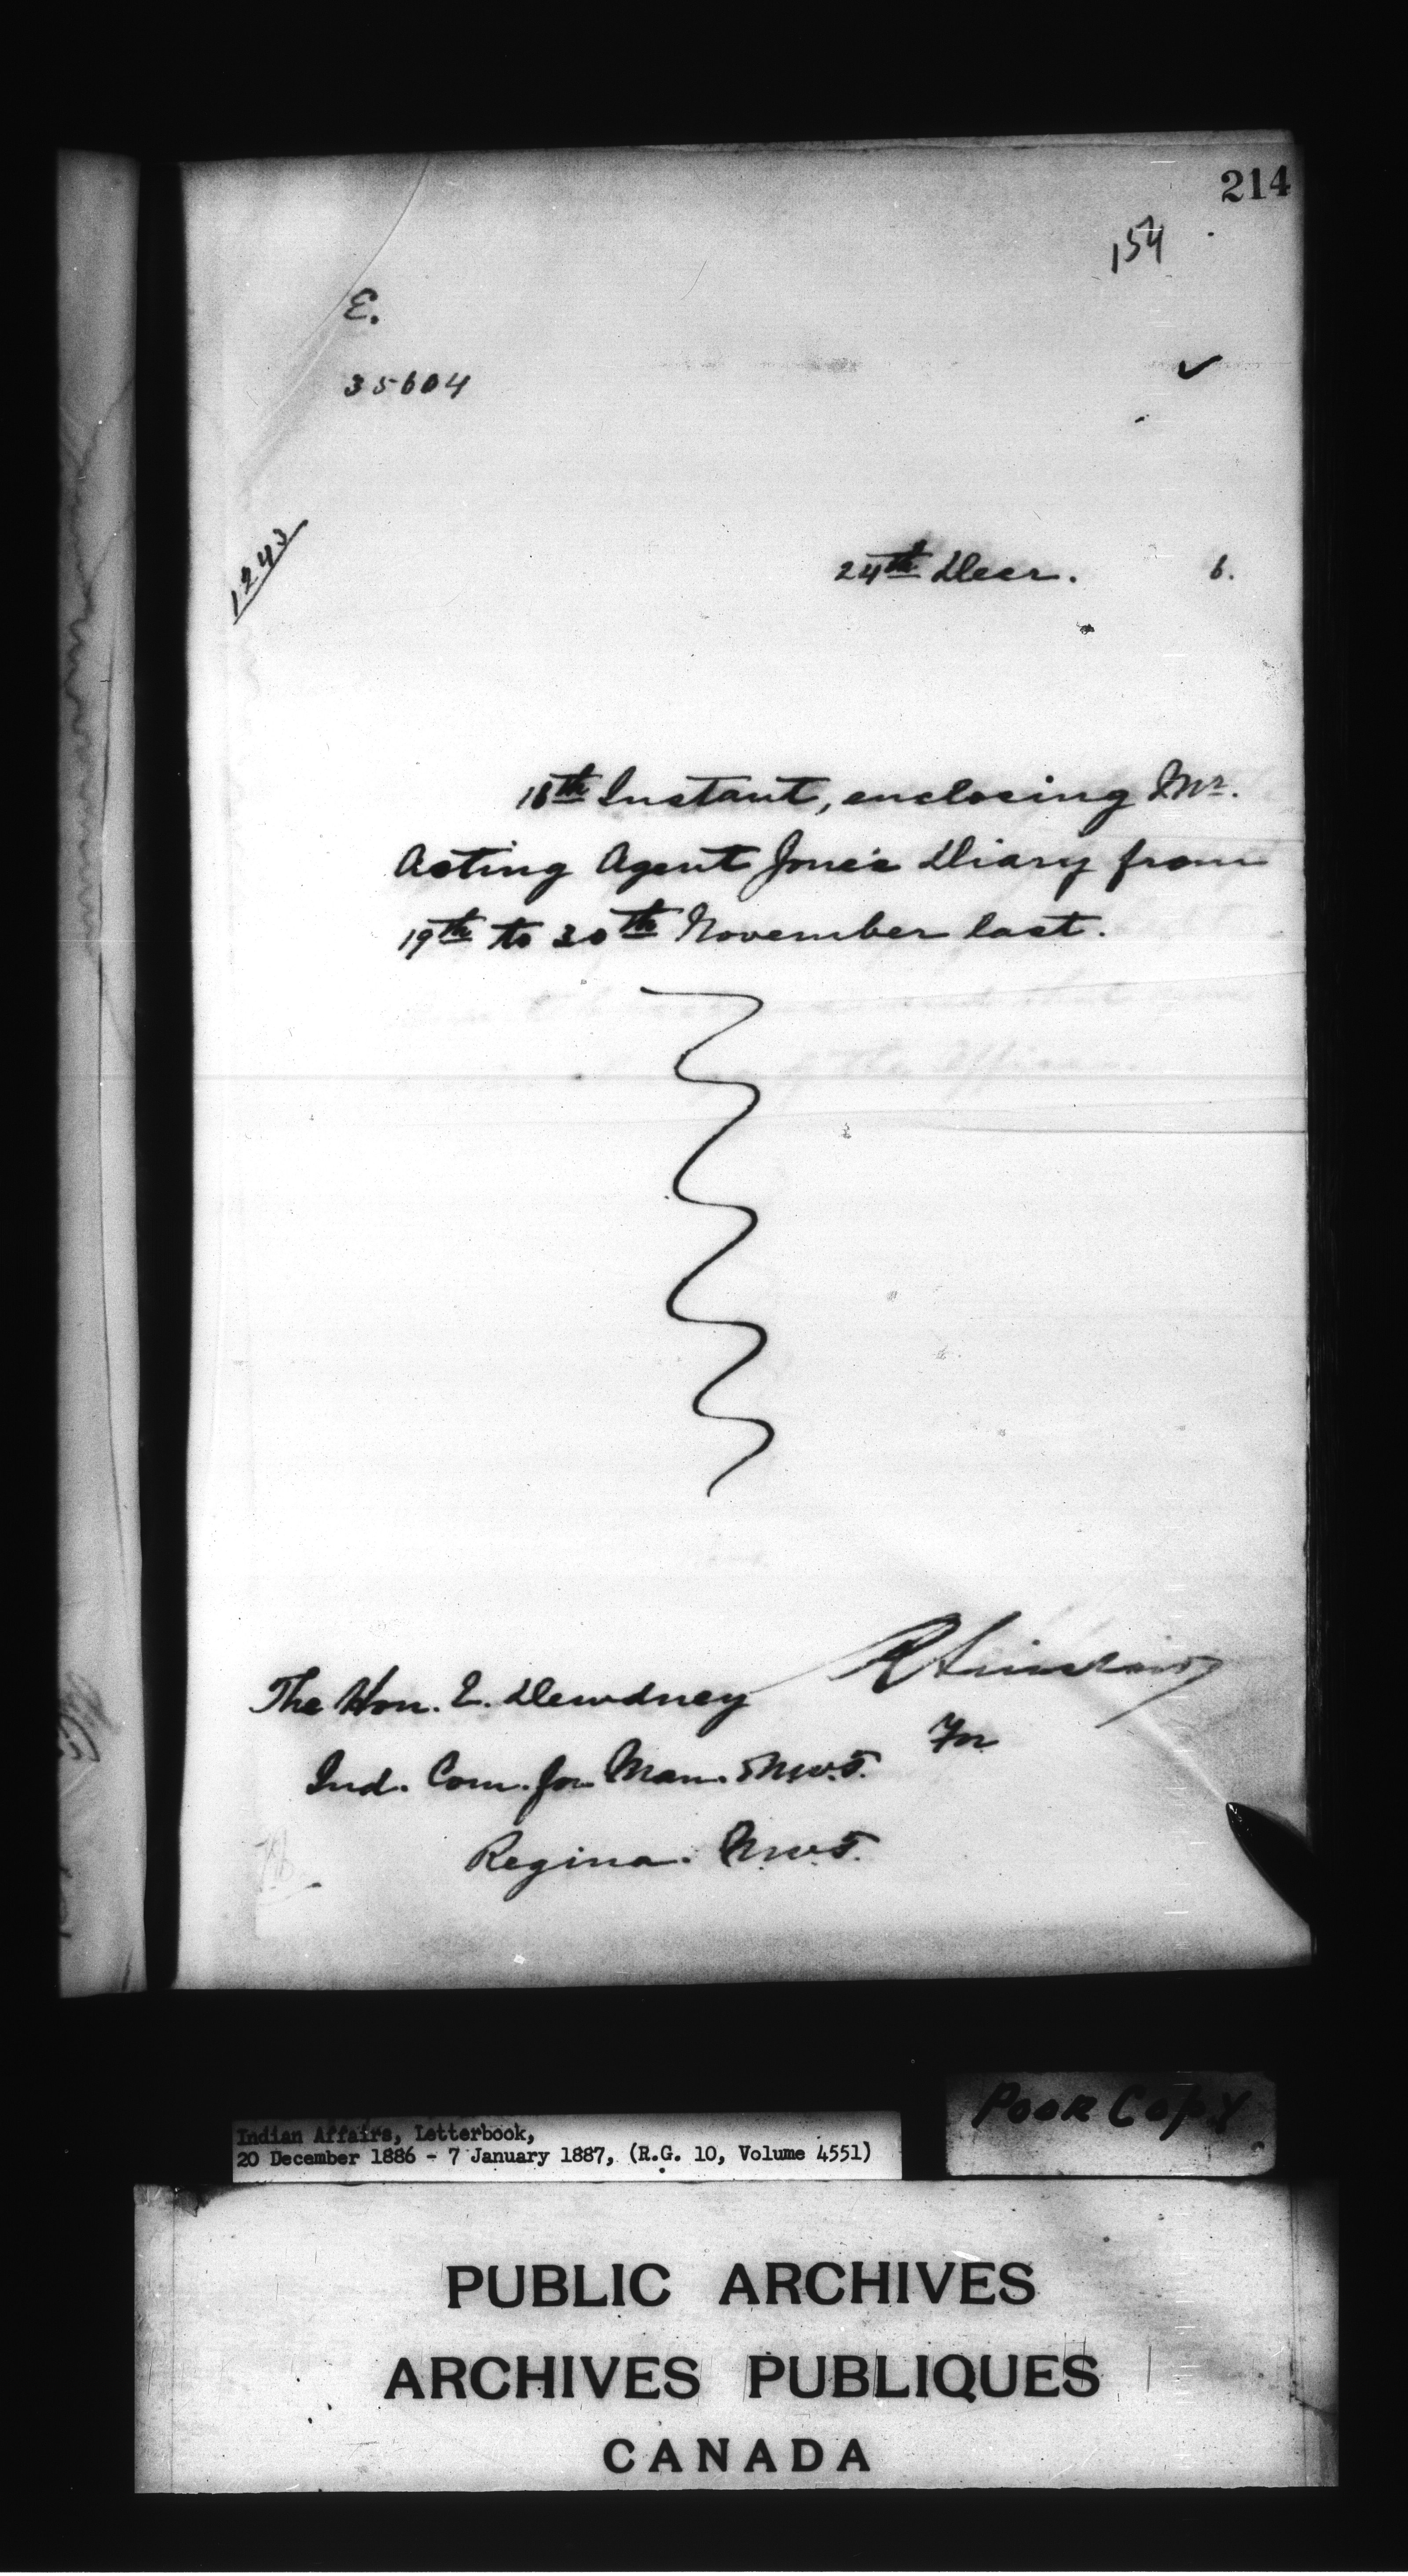 214
154
E.
35604
1243
24th Decr. 6.
18th Instant, enclosing Mr.
Acting Agent Jone's Diary from
19th to 30th November last.
R Sinclair
The Hon. E. Dewdney
For
Ind. Com. for Man. & N.W.T.
Regina. N.W.T.
Poor Copy
Indian Affairs, Letterbook,
20 December 1886 - 7 January 1887, (R.G. 10, Volume 4551)
PUBLIC ARCHIVES
ARCHIVES PUBLIQUES
CANADA